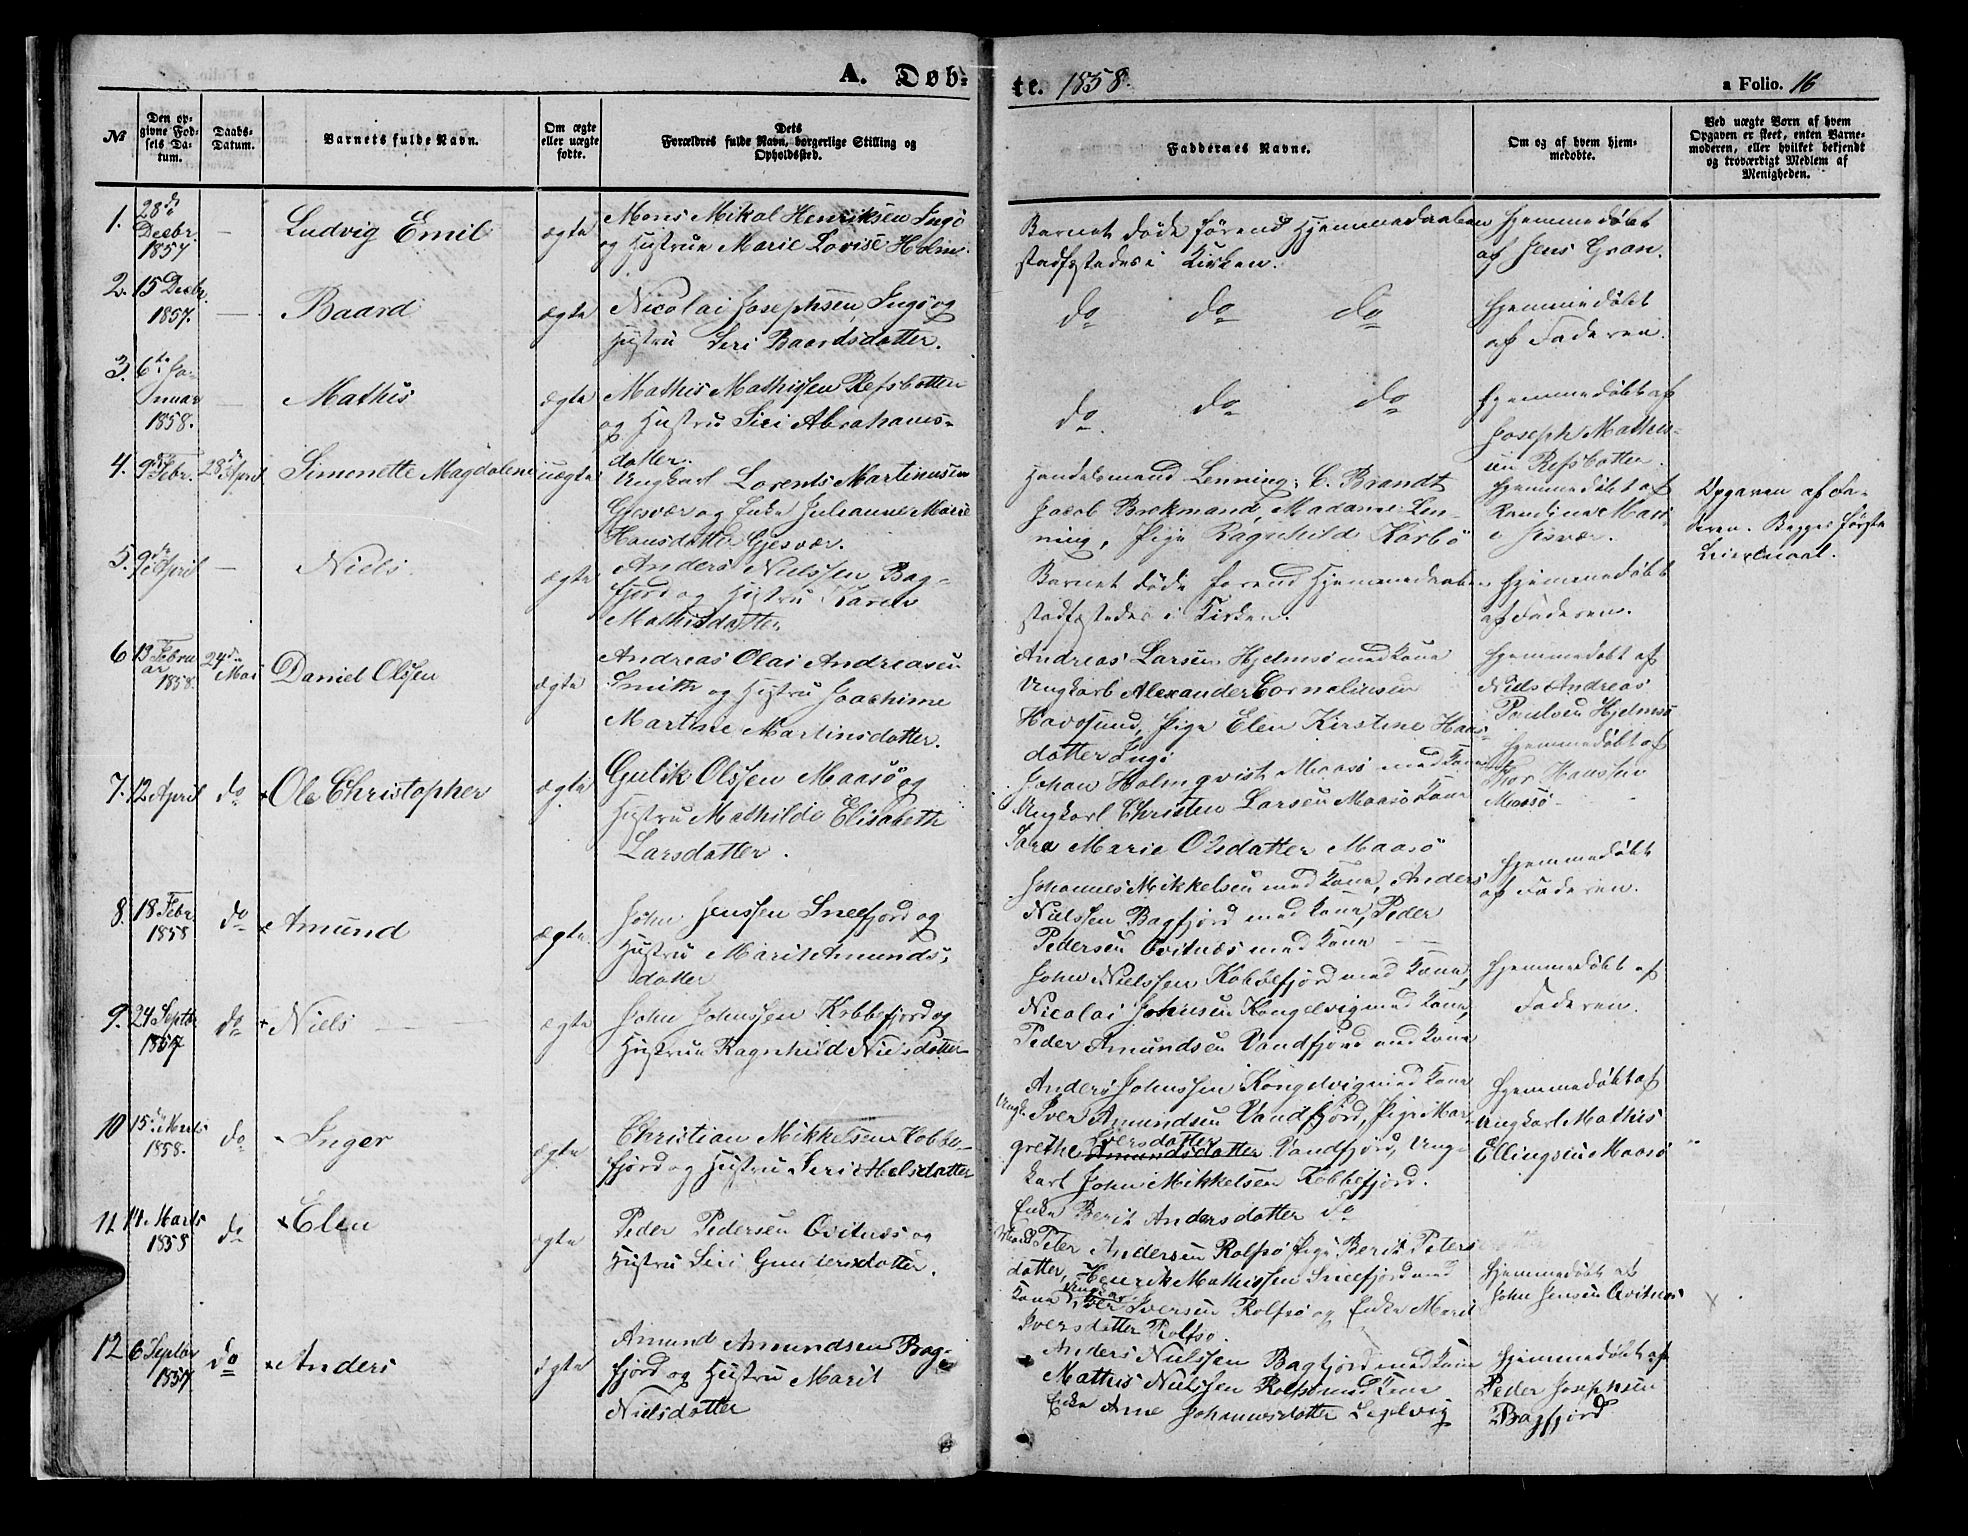 A. Døb-
te. 1858.
a Folio. 16
No
Den op-
givne Fød-
sels Da-
tum.
Daabs-
Datum.
Barnets fulde Navn.
Om ægte
eller uægte
fødte.
Dets
Forældres fulde Navn, borgerlige Stilling og
Opholdssted.
Faddernes Navne.
Om og af hvem hjem-
medøbte.
Ved uægte Børn af hvem
Opgaven er skeet, enten Barne-
moderen, eller hvilket bekjendt
og troværdigt Medlem af
Menigheden.
1.
28de
Decbr.
1857
—
Ludvig Emil
ægte
Mons Mikal Henriksen Ingø
og Hustrue Marie Lovise Holm.
Barnet døde førend Hjemmedaaben
stadfæstedes i Kirken.
Hjemmedøbt
af Jens Gran.
2.
15 Decbr.
1857.
—
Baard
ægte
Nicolai Josephsen, Ingø og
Hustru Siri Baardsdatter.
do do do
Hjemmedøbt
af Faderen.
3.
6te Ja-
nuar
1858.
—
Mathis
ægte
Mathis Mathissen Refsbotten
og Hustru Siri Abrahams-
datter.
do do do
Hjemmedøbt af
Joseph Mathis-
sen Refsbotten.
4.
9de Febr.
28de April
Simonette Magdalene
uægte
Ungkarl Lorents Martinussen
Gjesvær og Enke Julianne Marie
Hansdatter Gjesvær.
Handelsmand Lenning, C. Brandt
Jacob Brekmand, Madame Len-
ning, Pige Ragnhild Karbø
Hjemmedøbt af
i Gjesvær.
Opgaven af Fa-
deren. Begges første
Leiermaal.
5.
9de April
—
Niels.
ægte
Anders Nielssen Bag-
fjord og Hustru Karen
Mathisdatter
Barnet døde førend Hjemmedaaben
stadfæstedes i Kirken.
Hjemmedøbt
af Faderen.
6
13 Febru
ar
1858.
24de
Mai
Daniel Olssen
ægte
Andreas Olai Andreasen
Smith og Hustru Joachime
Martine Martinsdatter.
Andreas Larsen Hjelmsø med Kone
Ungkarl Alexander Corneliusen
Havøsund, Pige Elen Kirstine Hans-
datter Ingø
Hjemmedøbt af
Niels Andreas
Paulsen Hjelmsø
7.
12 April
do
Ole Christopher
ægte
Gulik Olssen Maasø og
Hustru Mathilde Elisabeth
Larsdatter.
Johan Holmqvist Maasø med Kone
Ungkarl Christen Larsen Maasø Kone
Sara Marie Olsdatter Maasø
Hjemmedøbt af
Hanssen
Maasø
8.
18 Febr.
1858
do
Amund
ægte.
John Jenssen Sneefjord og
Hustru Marit Amunds-
datter
Johannes Mikkelsen med Kone, Anders
Nielssen Bagfjord med Kone, Peder
Pedersen Qvitnæs med Kone
Hjemmedøbt
af Faderen.
9.
24 Septbr
1857
do
Niels
ægte
John Johnssen Kobbefjord og
Hustrue Ragnhild Nielsdatter
John Nielssen Kobbefjord med Kone,
Nicolai Johnsen Kongelvig med Kone,
Peder Amundsen Vandfjord med Kone
Hjemmedøbt af
Faderen.
10
15de Marts
1858.
do
Inger
ægte
Christian Mikkelsen Kobbe-
fjord og Hustru Siri Nielsdatter
Anders Johnssen Kongelvig med Kone
Ungk. Iver Amundsen Vandfjord, Pige Mar-
grethe Iversdatter Amundsdatter Vandfjord, Ung-
karl John Mikkelsen Kobbefjord.
Enke Berit Andersdatter do
Hjemmedøbt af
Ungkarl Mathis
Ellingsen Maasø
11.
14 Marts
1858
do
Elen
ægte
Peder Pedersen Qvitnæs og
Hustru Siri Gundersdatter.
Peter Andersen Rolfsø Pige Berit Peters
datter, Henrik Mathissen Sneefjord med
Kone, Ungkar Iver Iversen Rolfsø og Enke Marit
Iversdatter Rolfsø.
Hjemmedøbt af
John Jensen Qvitnæs
12
6 Septbr
1857
do
Anders
ægte
Amund Amundsen Bag-
fjord og Hustru Marit
Nielsdatter
Anders Nielssen Bagfjord med Kone
Mathis Nielssen Rolfsø med Kone
Enke Ane Johannesdatter
Hjemmedøbt af
Peder Josephsen
Bagfjord